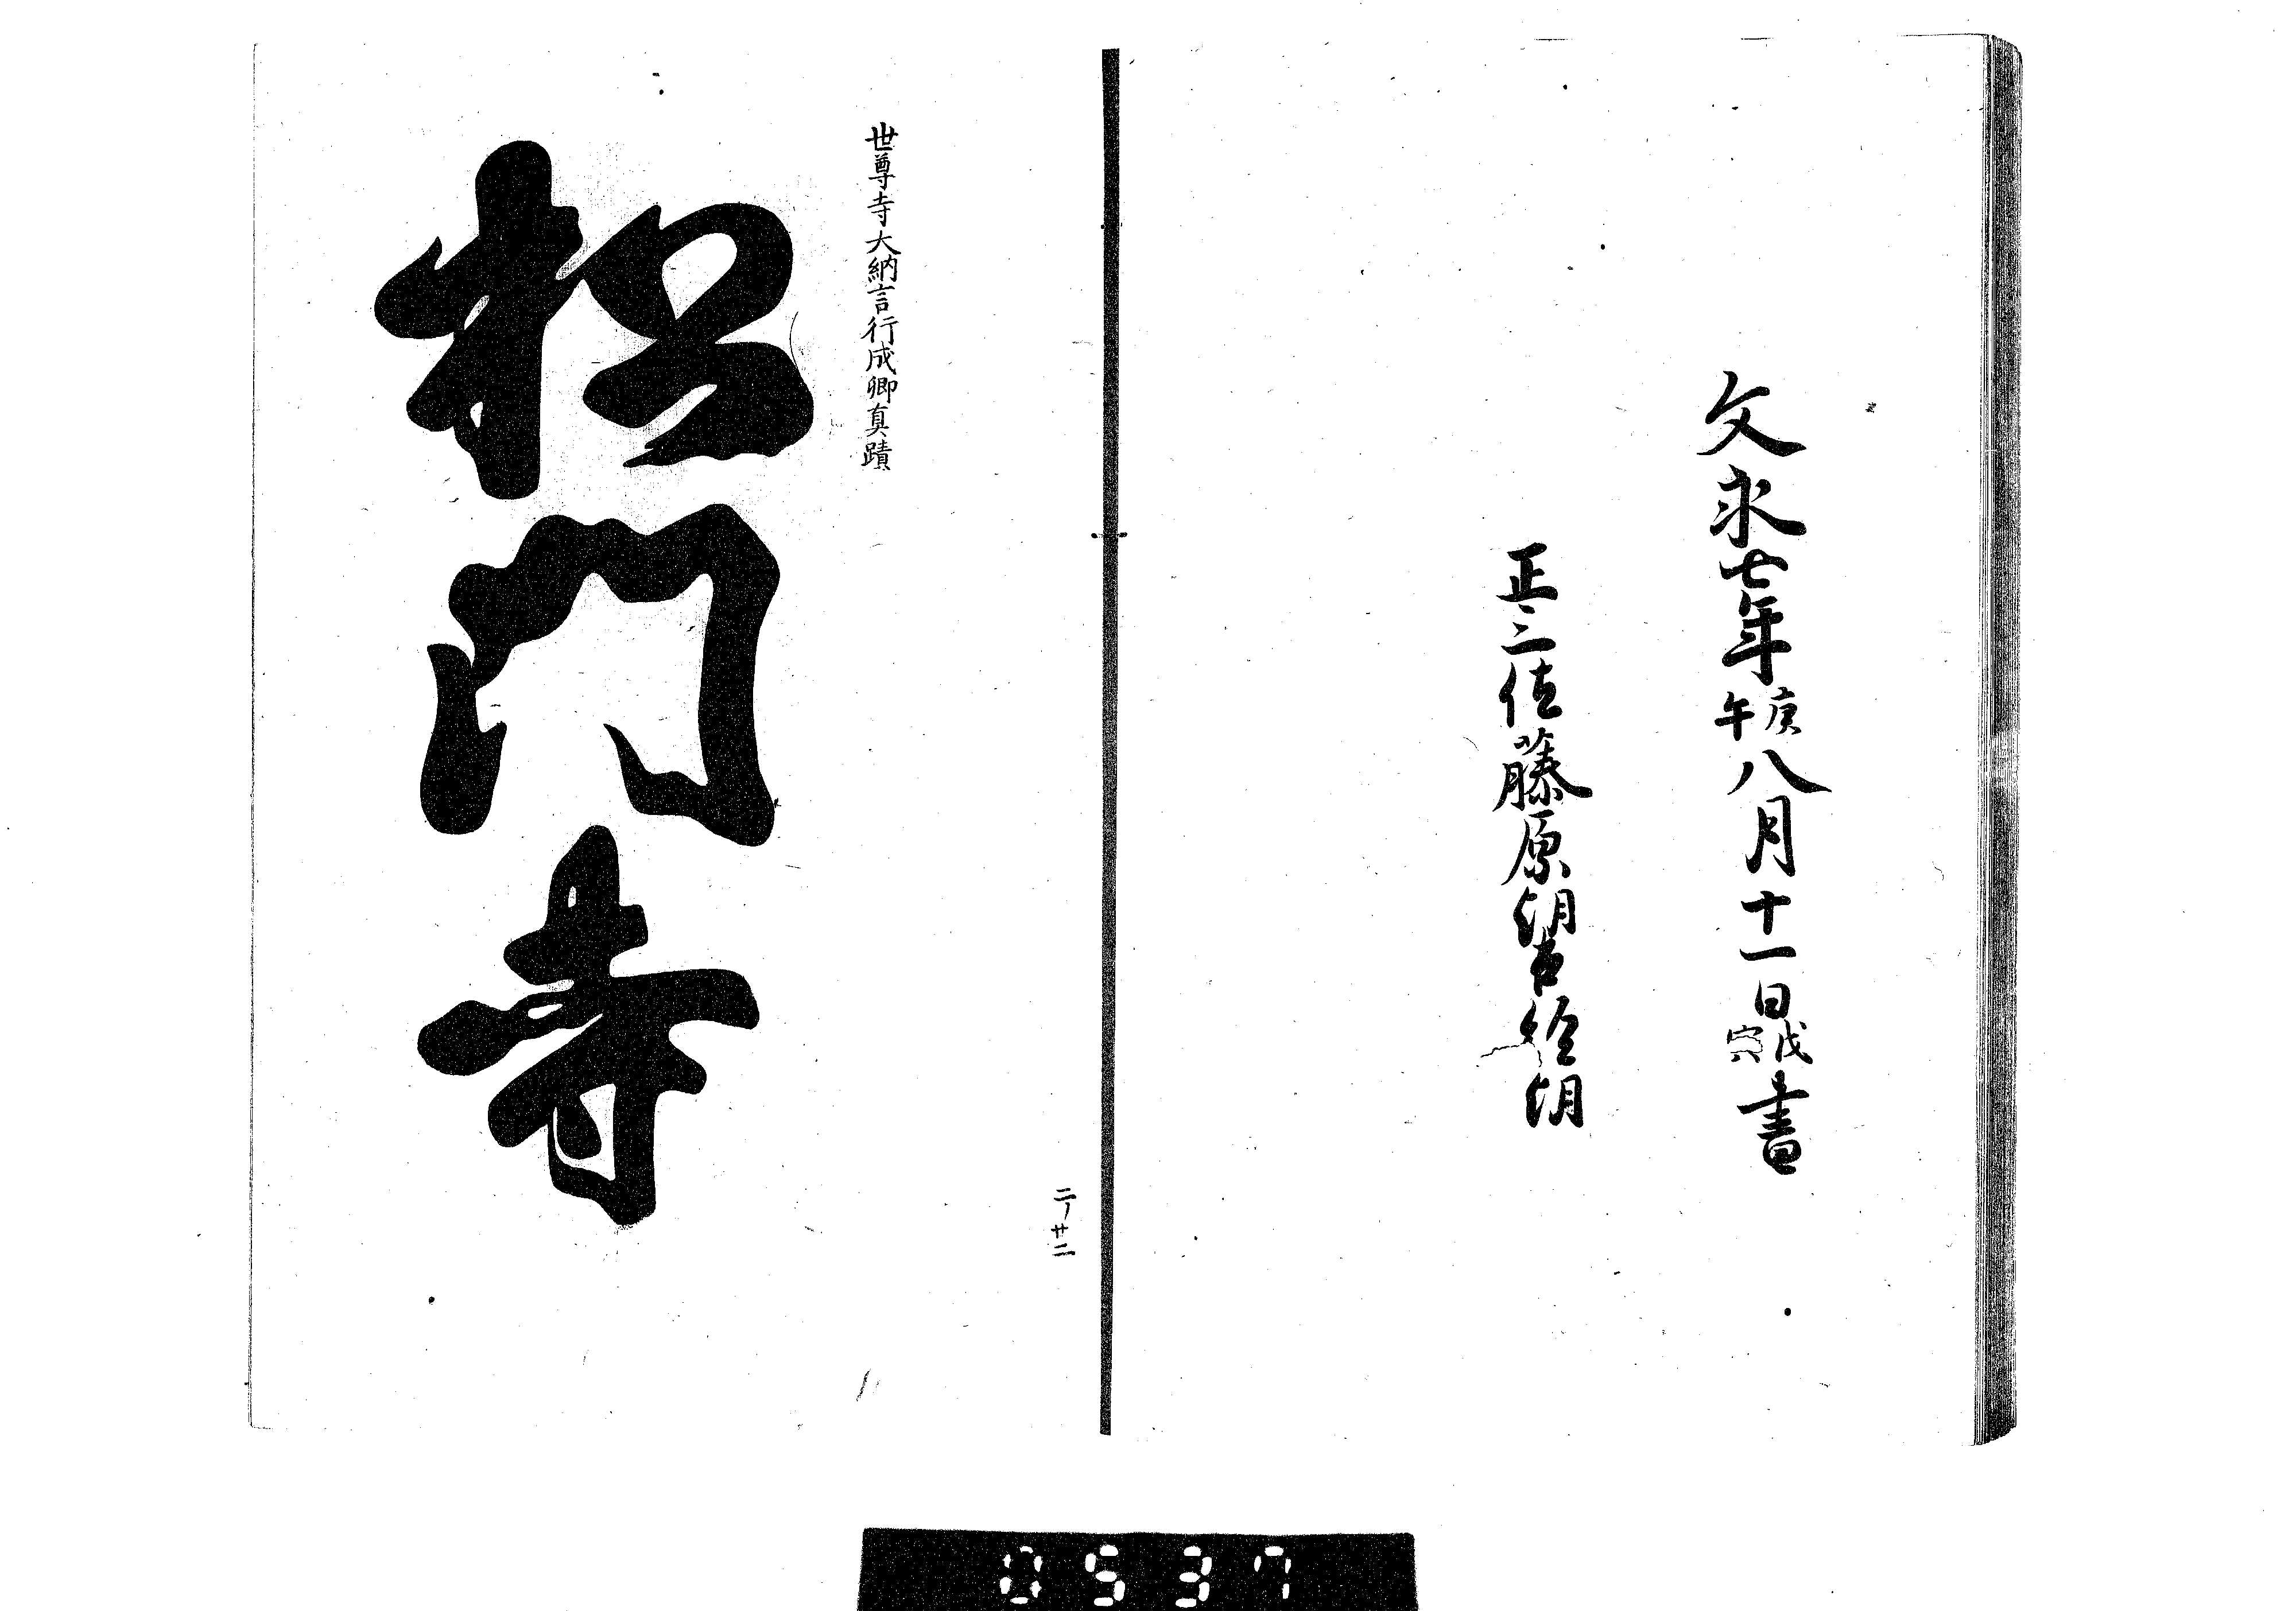 文永七年庚午八月十一日戊寅書
正三位藤原朝臣経朝
世尊寺大納言行成卿真蹟
松門寺
二ノ廿二
0537